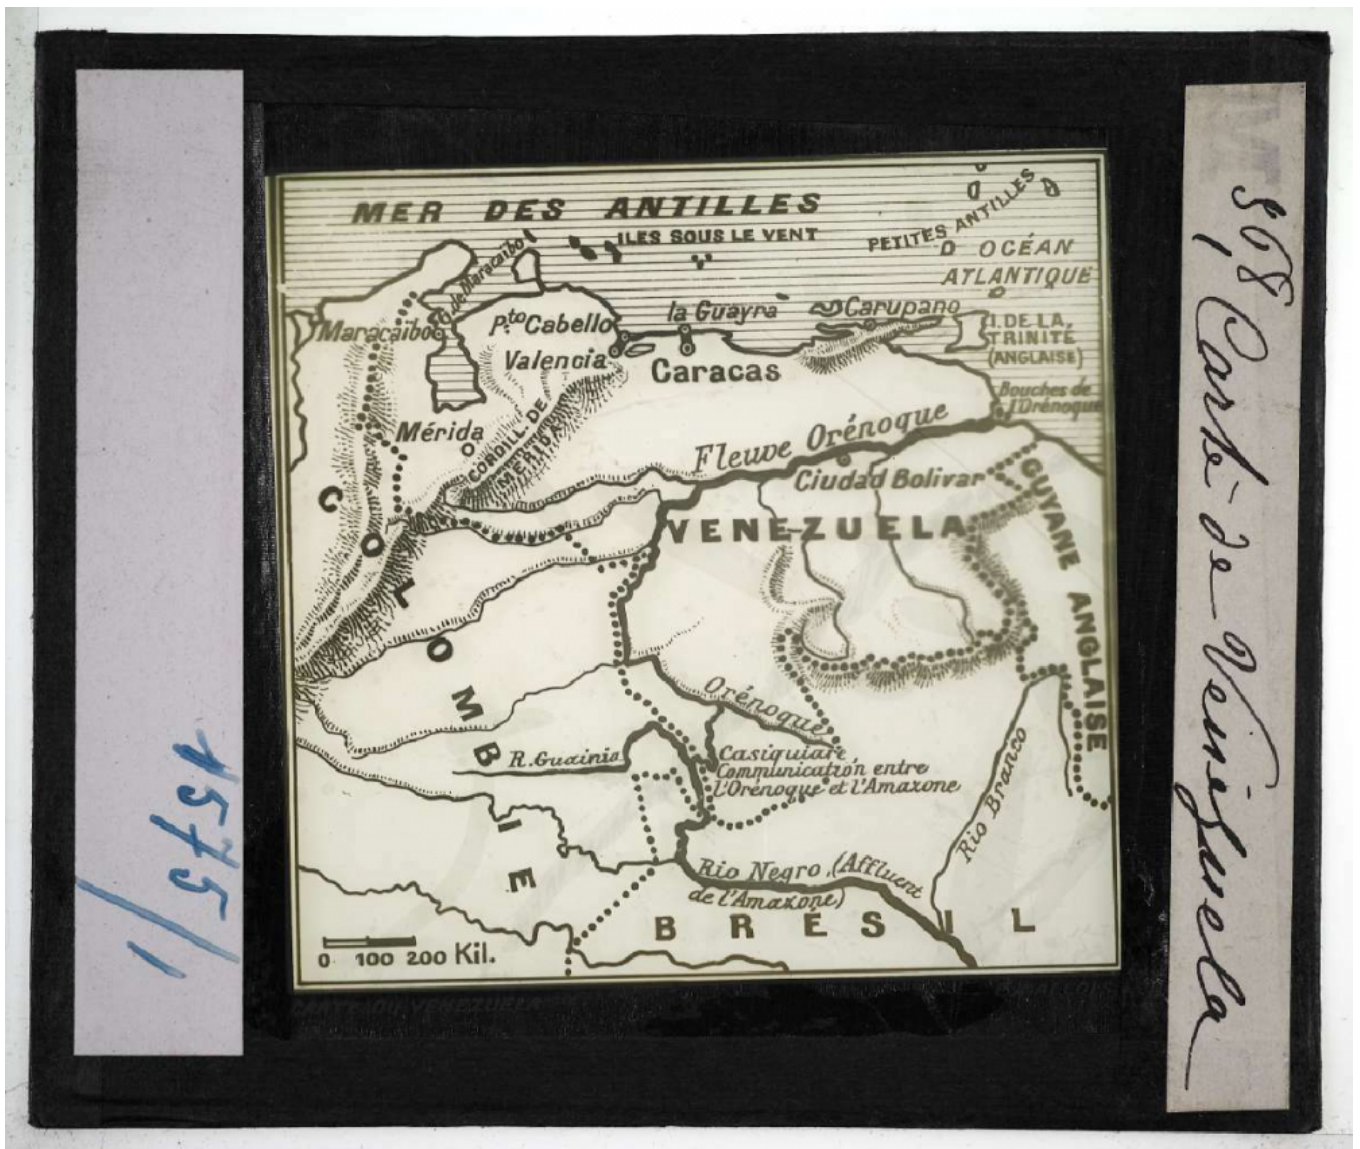 MER DES ANTILLES
ILES SOUS LE VENT
PETITES ANTILLES
OCÉAN
ATLANTIQUE
G. de Maracaibo
Maracaibo
P.to Cabello
la Guayra
Carupano
I. DE LA
TRINITÉ
(ANGLAISE)
Valencia
Caracas
Bouches de
l'Orénoque
Mérida
CORDILL. DE
MERIDA
Fleuve Orénoque
Ciudad Bolivar
VENEZUELA
GUYANE ANGLAISE
COLOMBIE
Orénoque
R. Guainia
Casiquiare
Communication entre
l'Orénoque et l'Amazone
Rio Branco
Rio Negro (Affluent
de l'Amazone)
BRÉSIL
0 100 200 Kil.
CARTE DU VENEZUELA
1575/1
Carte de Vénézuela